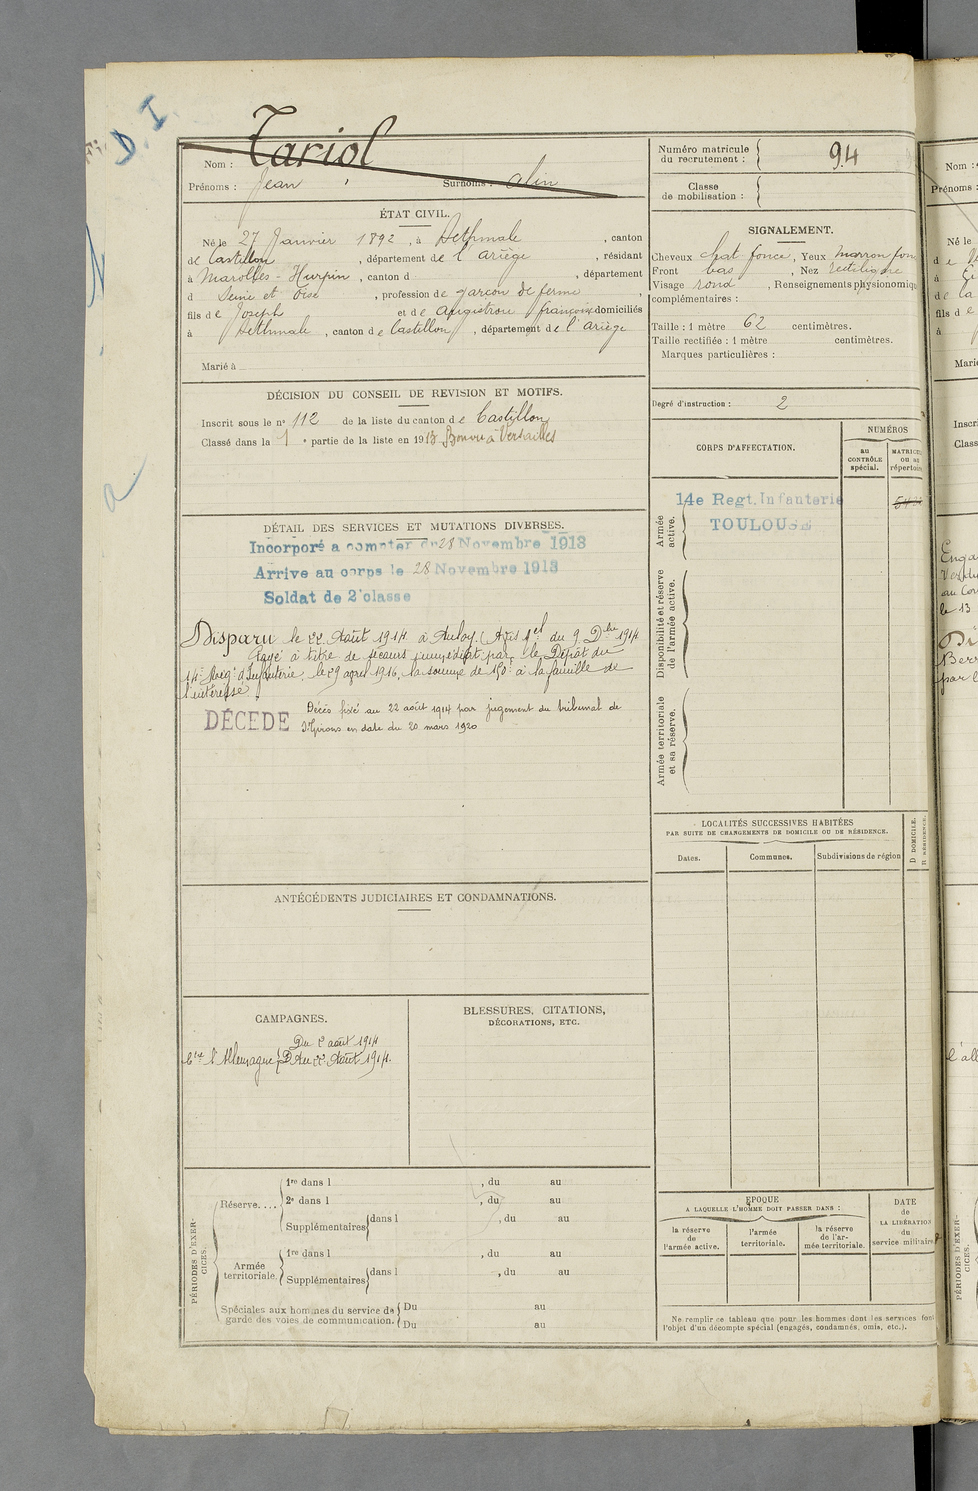 D. I.
Nom : Tariol
Prénoms : Jean Surnoms : Alin
ÉTAT CIVIL.
Né le 27 Janvier 1892, à Bethmale, canton
de Castillon, département de l'Ariège, résidant
à Marolles-Hurpin, canton d , département
d Seine et Oise, profession de garçon de ferme,
fils de Joseph et de Augistrou françoise domiciliés
à Bethmale, canton de Castillon, département de l'Ariège
Marié à
DÉCISION DU CONSEIL DE REVISION ET MOTIFS.
Inscrit sous le n° 112 de la liste du canton de Castillon
Classé dans la 1 e partie de la liste en 1913 Bon vu à Versailles
DÉTAIL DES SERVICES ET MUTATIONS DIVERSES.
Incorporé a compter du 28 Novembre 1913
Arrive au corps le 28 Novembre 1913
Soldat de 2e classe
Disparu le 22 Août 1914 à (Avis du 9 Dbre 1914
Payé à titre de secours immédiat par le Dépôt du
14e Reg. d'Infanterie, le 29 avril 1916, la somme de 150 à la famille de
l'intéressé
DÉCÉDÉ
Décès fixé au 22 août 1914 par jugement du tribunal de
St Girons en date du 20 mars 1920
ANTÉCÉDENTS JUDICIAIRES ET CONDAMNATIONS.
CAMPAGNES.
Du 2 août 1914
Ctre l'Allemagne Au 22 Août 1914.
BLESSURES, CITATIONS,
DÉCORATIONS, ETC.
PÉRIODES D'EXERCICES.
Réserve....
1re dans l , du au
2e dans l , du au
Supplémentaires dans l , du au
Armée territoriale.
1re dans l , du au
Supplémentaires dans l , du au
Spéciales aux hommes du service de Du au
garde des voies de communication. Du au
Numéro matricule
du recrutement : 94
Classe
de mobilisation :
SIGNALEMENT.
Cheveux chat foncé, Yeux marron fon
Front bas, Nez rectiligne
Visage rond, Renseignements physionomiqu
complémentaires :
Taille : 1 mètre 62 centimètres.
Taille rectifiée : 1 mètre centimètres.
Marques particulières :
Degré d'instruction : 2
CORPS D'AFFECTATION.
NUMÉROS
au
CONTRÔLE
spécial.
Armée
active.
14e Regt. Infanterie
TOULOUSE
Disponibilité et réserve
de l'armée active.
Armée territoriale
et sa réserve.
LOCALITÉS SUCCESSIVES HABITÉES
PAR SUITE DE CHANGEMENTS DE DOMICILE OU DE RÉSIDENCE.
Dates. Communes. Subdivisions de région
D DOMICILE.
R RÉSIDENCE.
ÉPOQUE
A LAQUELLE L'HOMME DOIT PASSER DANS :
la réserve
de
l'armée active.
l'armée
territoriale.
la réserve
de l'ar-
mée territoriale.
DATE
de
LA LIBÉRATION
du
service militaire
Ne remplir ce tableau que pour les hommes dont les services font
l'objet d'un décompte spécial (engagés, condamnés, omis, etc.).